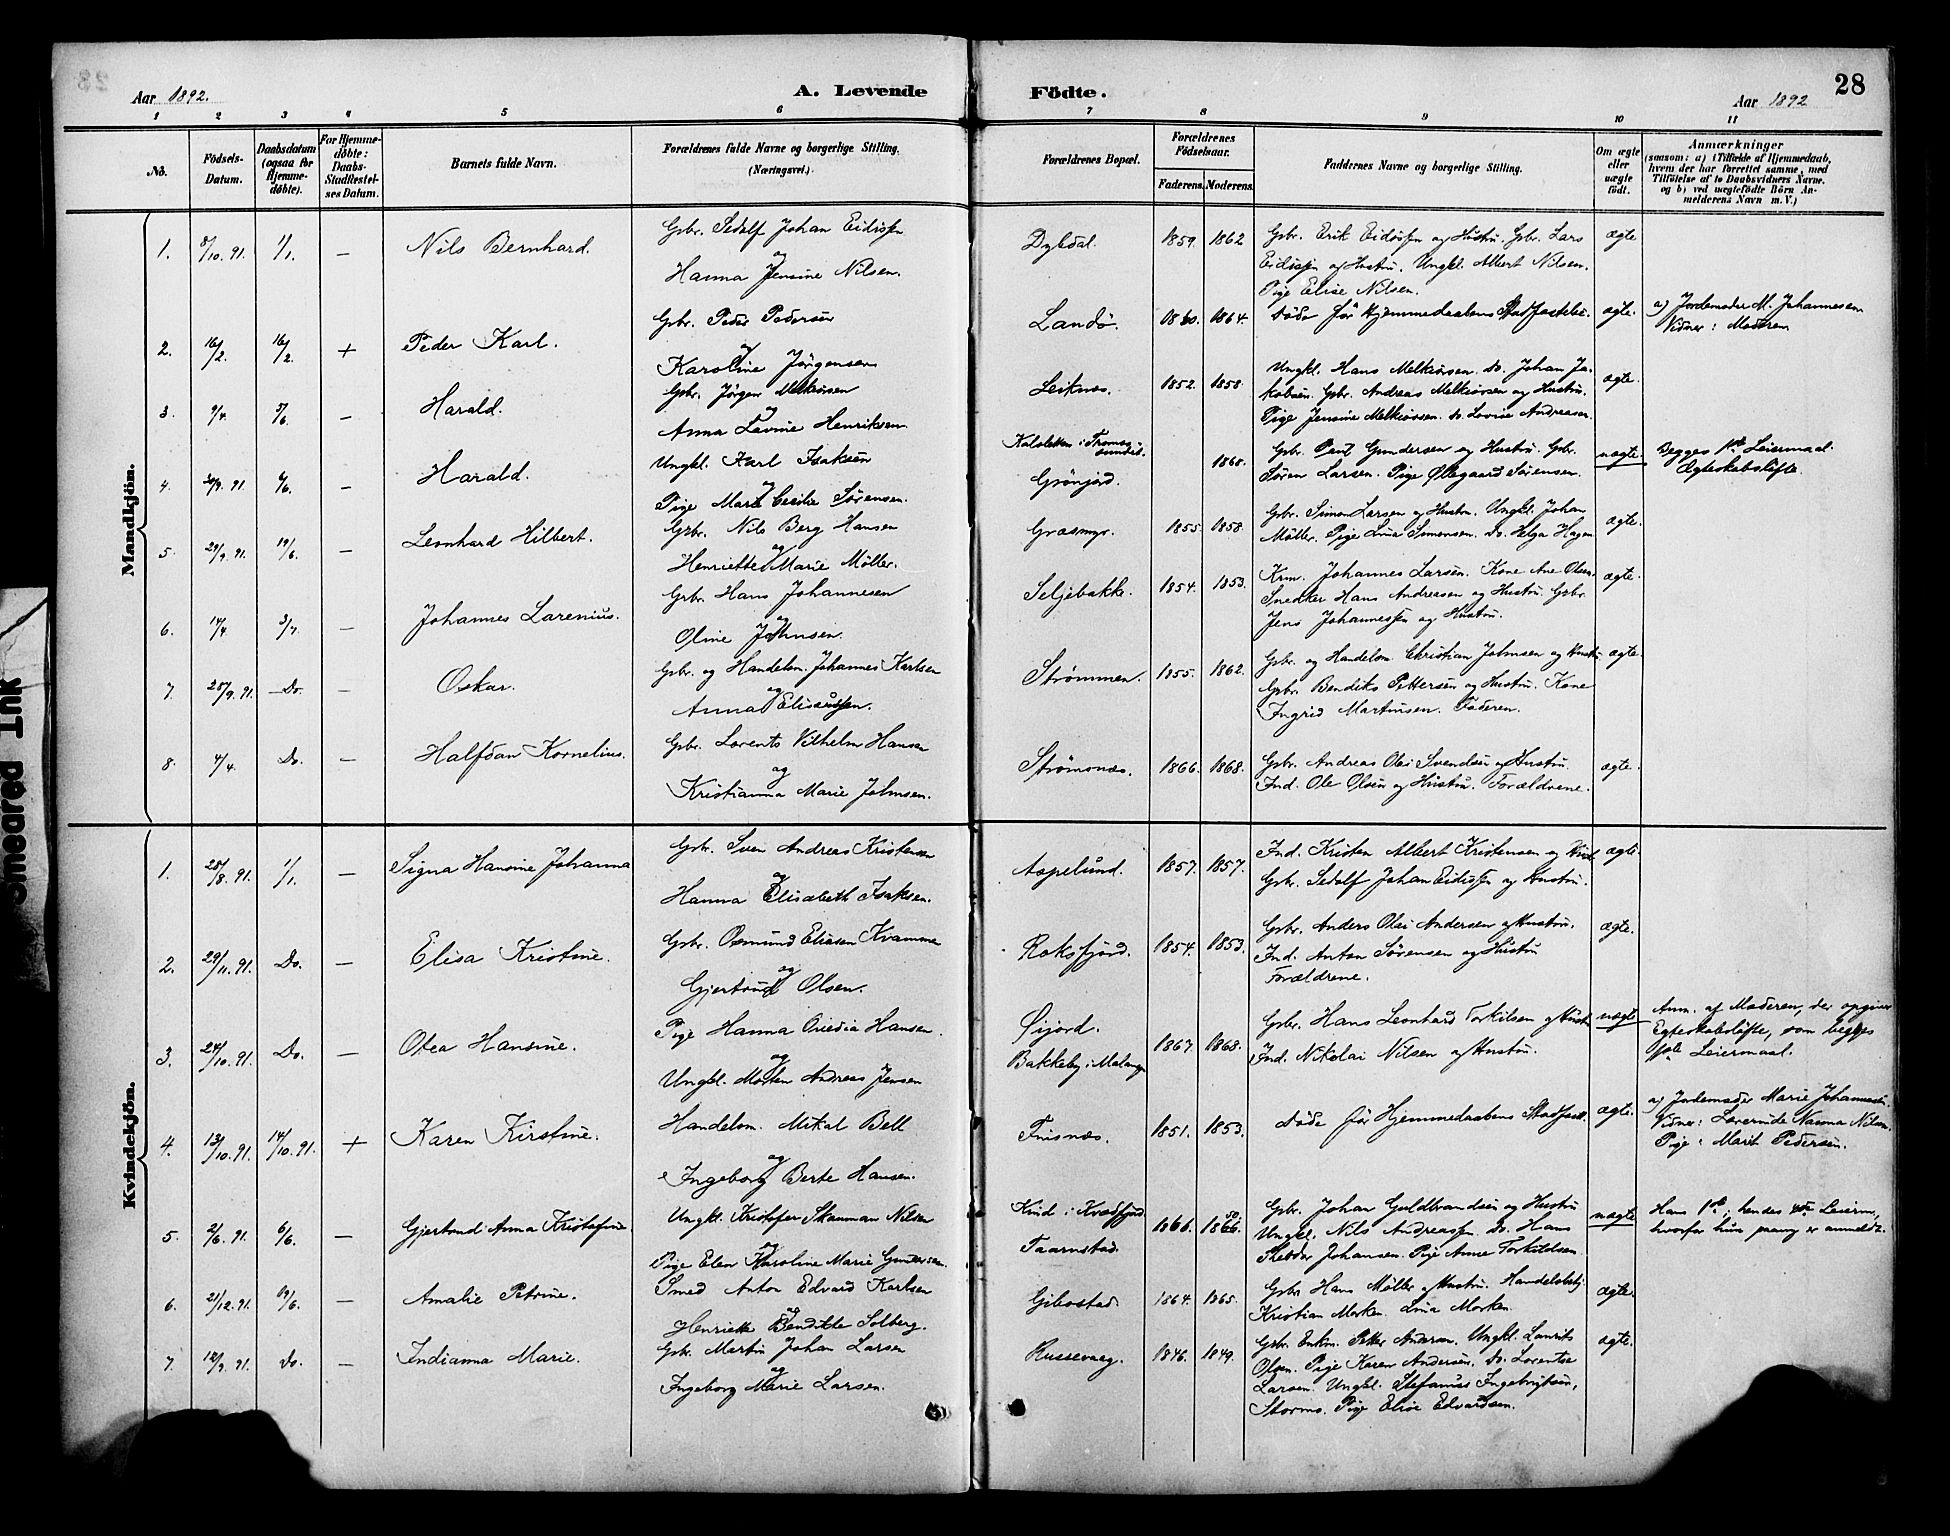 28
Aar 1892.
A. Levende Födte.
Aar 1892
1 2 3 4 5 6 7 8 9 10 11
No.
Födsels-Datum.
Daabsdatum (ogsaa for Hjemmedøbte).
For Hjemmedøbte: Daabs Stadfæstelses Datum.
Barnets fulde Navn.
Forældrenes fulde Navne og borgerlige Stilling.
(Næringsvei.)
Forældrenes Bopæl.
Forældrenes Födselsaar.
Faderens. Moderens.
Faddernes Navne og borgerlige Stilling.
Om ægte eller uægte födt.
Anmærkninger
(saasom: a) i Tilfælde af Hjemmedaab, hvem der har forrettet samme, med Tilföielse af to Daabsvidners Navne, og b) ved uægtefödte Börn Anmelderens Navn m. V.)
Mandkjön.
1. 8/10. 91. 1/1. — Nils Bernhard.
Gbr. Sedolf Johan Eidissen
og
Hanna Jensine Nilsen.
Dybdal. 1859. 1862
Gbr. Erik Eidissen og Hustru. Gbr. Lars
Eidissen og Hustru. Ungkl. Albert Nilsen.
Pige Elise Nilsen.
ægte
2. 16/2. 16/2. + Peder Karl.
Gbr. Peder Pedersen
og
Karoline Jørgensen
Landø. 1860. 1864.
Døde før Hjemmedaabens Stadfæstelse.
ægte.
a) Jordemoder M. Johannesen
Vidner: Moderen
3. 9/4. 5/6. — Harald.
Gbr. Jørgen Melkiorsen
og
Anna Lavine Henriksen
Leiknes. 1852. 1858.
Ungkl. Hans Melkiorsen. Do. Johan Ja-
kobsen. Gbr. Andreas Melkiorsen og Hustru.
Pige Jensine Melkiorsen. Do. Lovise Andreasen.
ægte.
4. 91. 6/6. — Harald.
Ungkl. Karl Isaksen
og
Pige Marie Cecilie Sørensen.
Kalsletten i Tromsø-
sundet.
Grønjord. 1868.
Gbr. Paul Gundersen og Hustru. Gbr.
Søren Larsen. Pige Ollegaard Sørensen.
uægte.
Begges 1ste Leiermaal.
Ægteskabsløfte.
5. 29/9. 91. 19/6. — Leonhard Hilbert.
Gbr. Nils Berg Hansen
og
Henriette Marie Møller.
Græsmyr. 1855. 1858.
Gbr. Simon Larsen og Hustru. Ungkl. Johan
Møller. Pige Lina Simonsen. Do. Helga Hagen
ægte.
6. 14/4. 3/7. — Johannes Larenius.
Gbr. Hans Johannesen
og
Oline Johnsen.
Seljebakke. 1854. 1853.
Krm. Johannes Larsen. Kone Ane Olsen.
Snedker Hans Andreasen og Hustru. Gbr.
Jens Johannessen og Hustru.
ægte.
7. 25/9. 91. — Do. — Oskar.
Gbr. og Handelsm. Johannes Karlsen
og
Anna Elisæussen.
Strømmen. 1855. 1862.
Gbr. og Handelsm. Christian Johnsen og Hustru
Gbr. Bendiks Pettersen og Hustru. Kone
Ingrid Martinsen. Faderen.
ægte.
8. 4/4. Do. — Halfdan Kornelius.
Gbr. Lorents Vilhelm Hansen
og
Kristianna Marie Johnsen.
Strømsnes. 1866. 1868.
Gbr. Andreas Olai Svendsen og Hustru.
Ind. Ole Olsen og Hustru. Forældrene.
ægte.
Kvindekjön.
1. 25/8. 91. 1/1. — Signa Hansine Johanna
Gbr. Sven Andreas Kristensen
og
Hanna Elisabeth Isaksen.
Aspelund. 1857. 1857.
Ind. Kristen Albert Kristensen og Hust.
Gbr. Sedolf Johan Eidissen og Hustru.
ægte
2. 29/11. 91. Do. — Elisa Kristine.
Gbr. Osmund Eliasen Kvamme
og
Gjertrud Olsen.
Roksfjord. 1854. 1853.
Gbr. Anders Olai Andersen og Hustru.
Ind. Anton Sørensen og Hustru
Forældrene.
ægte.
3. 24/10. 91. Do. — Otea Hansine.
Pige Hanna Ovedia Hansen.
og
Ungkl. Morten Andreas Jensen
Øijord.
Bakkeby i Malangen 1867. 1868.
Gbr. Hans Leonhard Torkilsen og Hustru
Ind. Nikolai Nilsen og Hustru.
uægte
Anm. af Moderen, der opgiver
Egteskabsløfte, som begges
1ste Leiermaal.
4. 13/10. 91. 14/10. 91. + Karen Kirstine.
Handelsm. Mikal Bell
og
Ingeborg Berte Hansen.
Finsnæs. 1851. 1853.
Døde før Hjemmedaabens Stadfæst.
ægte.
a) Jordemoder Marie Johannesen.
Vidner: Nanna Nilsen.
Pige: Marit Pedersen.
5. 2/6. 91. 6/6. — Gjertrud Anna Kristofine
Ungkl. Kristofer Skauman Nilsen
og
Pige Elen Karoline Marie Gundersen.
Kind i Kvædfjord
Taarnstad. 1866. 1866. 50.
Gbr. Johan Guldbrandsen og Hustru
Ungkl. Nils Andreassen. Do. Hans
Theodor Johansen. Pige Anne Torkildsen.
uægte
Hans 1ste; hendes 4de Leierm.,
hvorfor hun paany er anmeldt.
6. 21/12. 91. 19/6. — Amalie Petrine.
Smed Anton Edvard Karlsen
og
Henriette Bendikte Solberg.
Gibostad. 1864. 1865.
Gbr. Hans Møller og Hustru. Handelsbetj.
Kristian Morken. Lina Morken.
ægte.
7. 12/9. 91. Do. — Indianna Marie.
Gbr. Martin Johan Larsen
og
Ingeborg Marie Larsen.
Russevaag. 1846. 1849.
Gbr. Enkm. Peter Andersen. Ungkl. Laurits
Olsen. Pige Karen Andersen. Do. Lorentse
Larsen. Ungkl. Stefanus Ingebrigtsen,
Storms. Pige Elise Edvardsen.
ægte.
Smeared Ink